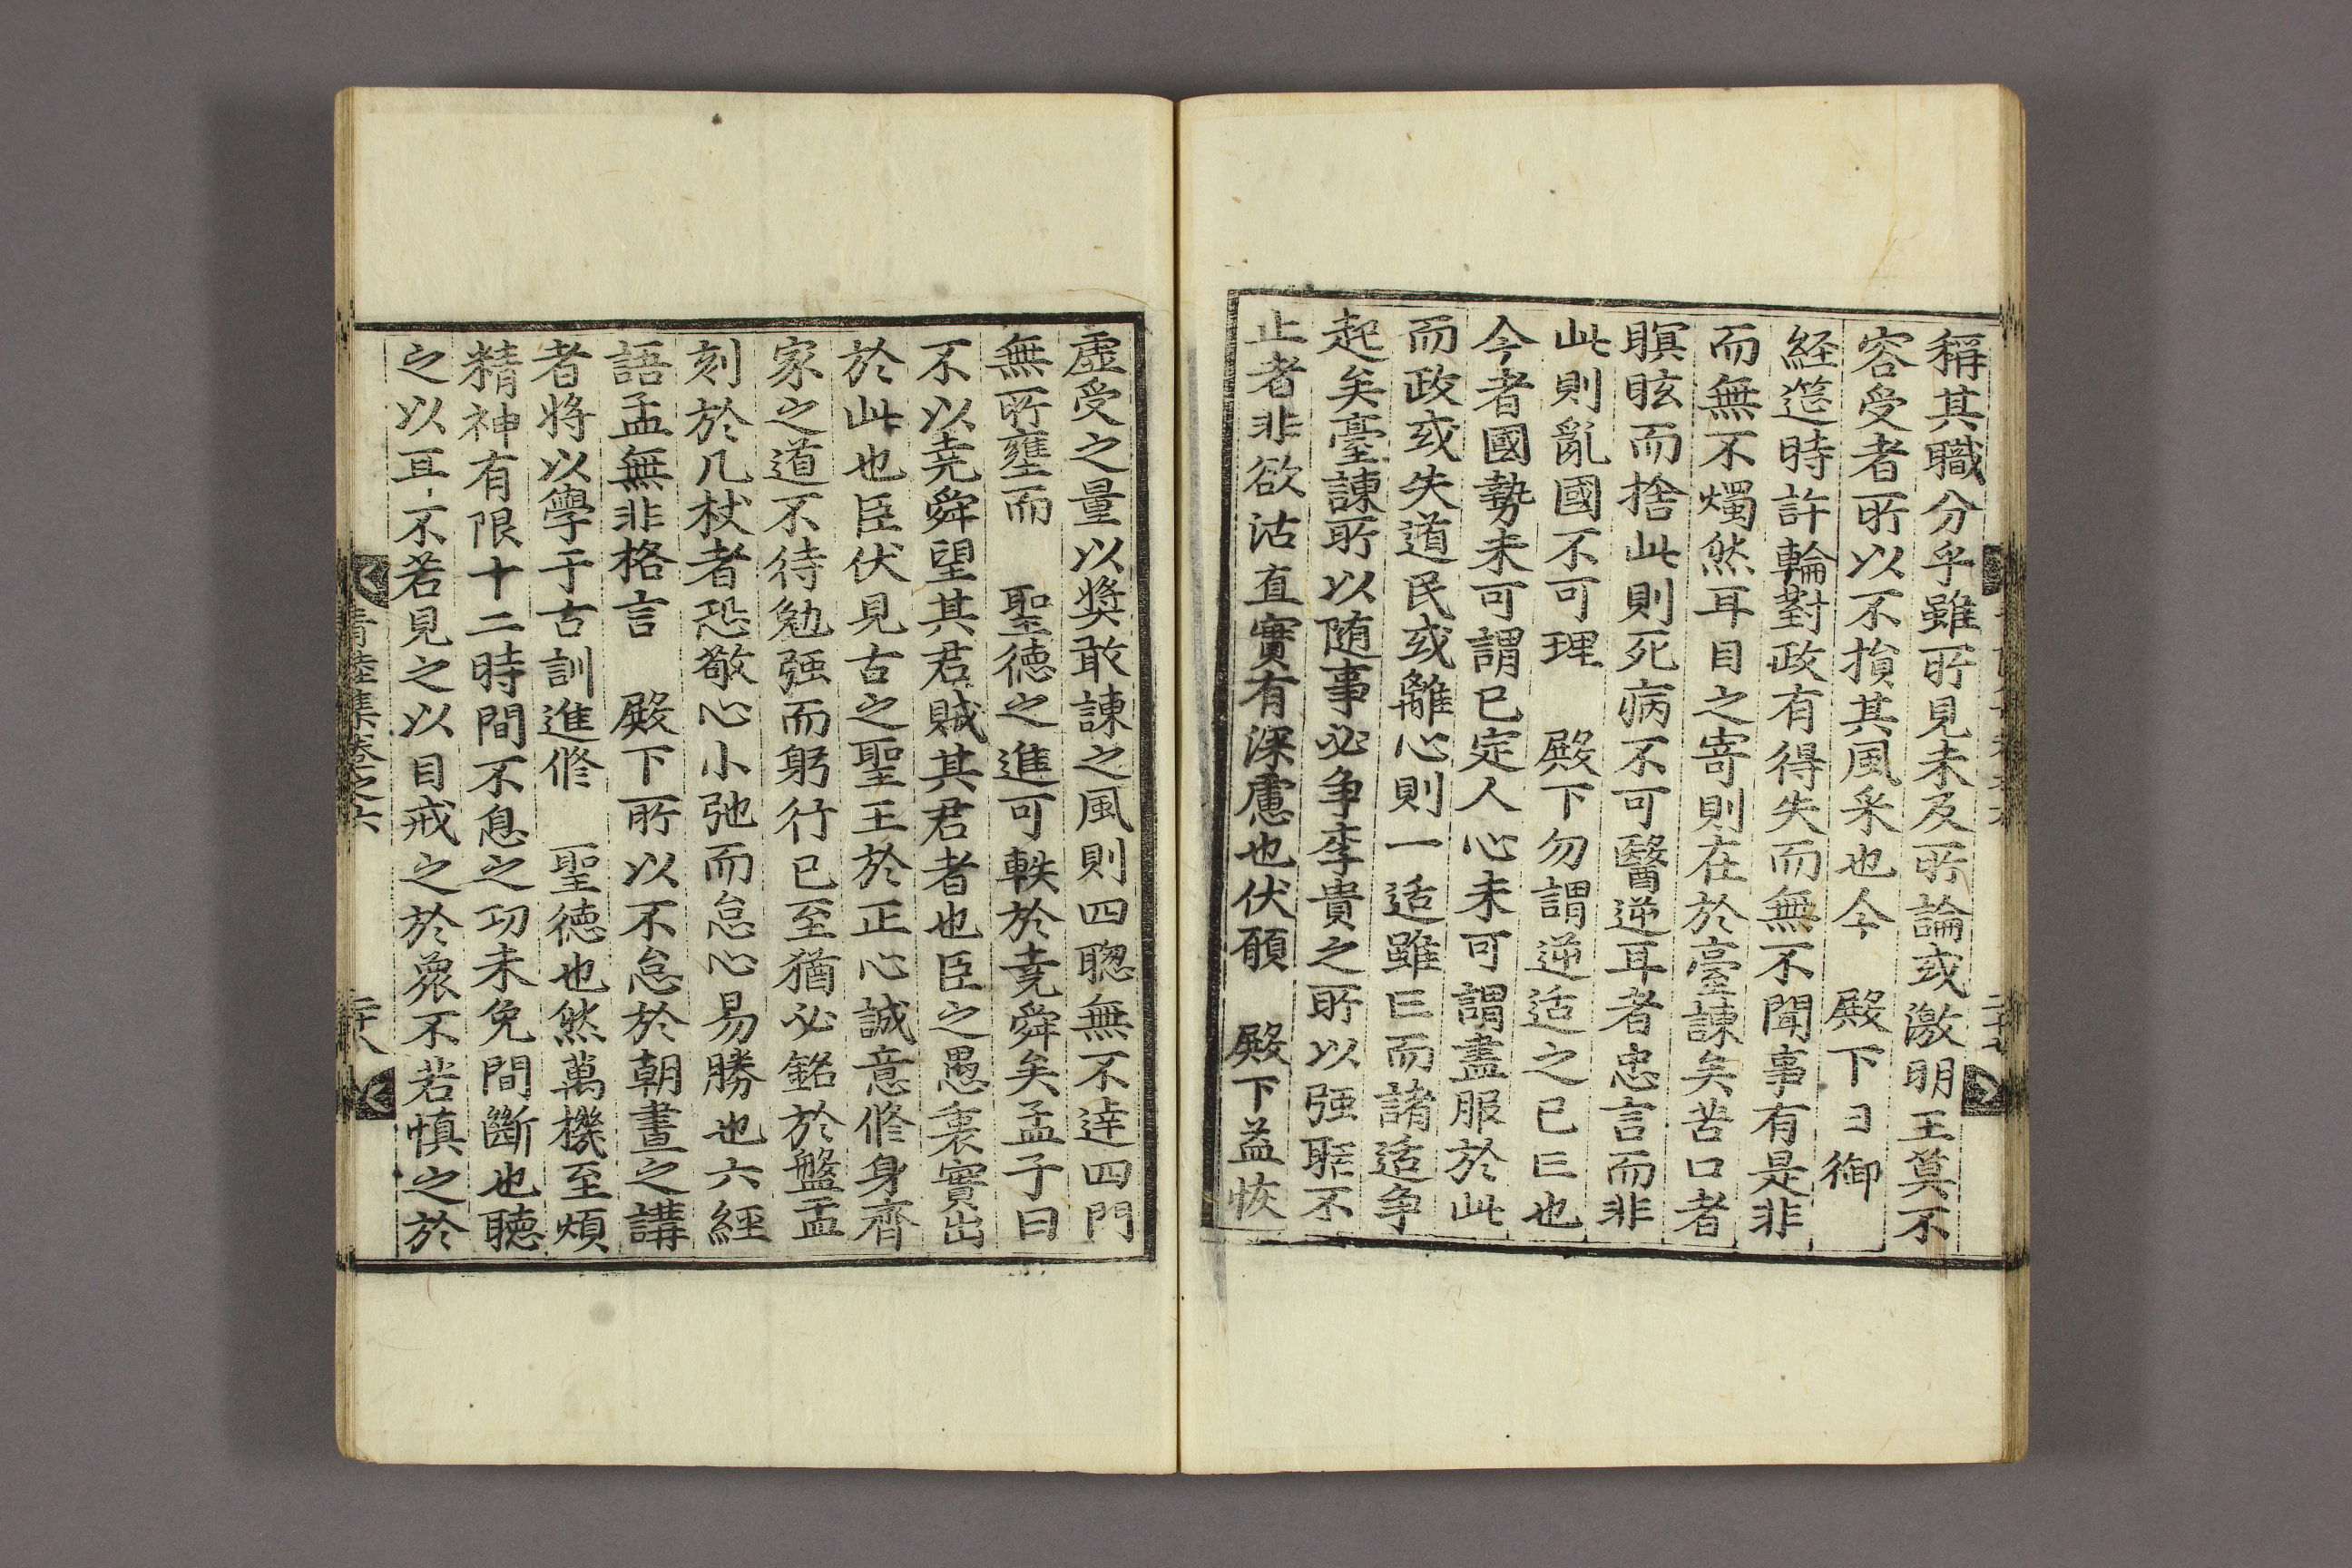 稱其職分乎雖所見未及所論或激明王莫不
容受者所以不損其風采也今　殿下日御
経筵時許輪對政有得失而無不聞事有是非
而無不燭然耳目之寄則在於臺諫矣苦口者
瞑眩而捨此則死病不可醫逆耳者忠言而非
此則亂國不可理　殿下勿謂逆适之已亡也
今者國勢未可謂已定人心未可謂盡服於此
而政或失道民或離心則一适雖亡而諸适爭
起矣臺諫所以随事必争李貴之所以强聒不
止者非欲沽直實有深慮也伏願　殿下益恢
虛受之量以奬敢諫之風則四聦無不達四門
無所壅而　聖德之進可軼於堯舜矣孟子曰
不以堯舜望其君賊其君者也臣之愚衷實出
於此也臣伏見古之聖王於正心誠意修身齊
家之道不待勉强而躬行已至猶必銘於盤盂
刻於几杖者恐敬心小弛而怠心易勝也六經
語孟無非格言　殿下所以不怠於朝晝之講
者将以學于古訓進修　聖德也然萬機至煩
精神有限十二時間不息之功未免間斷也聽
之以耳不若見之以目戒之於衆不若慎之於
青陸集卷之六　二十八